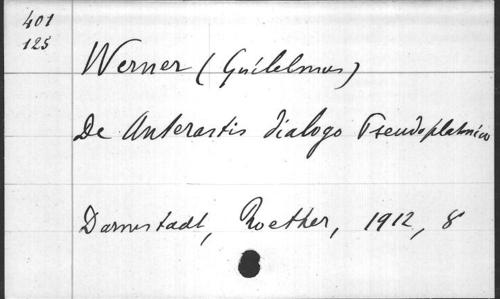 401
125
Werner (Guilelmus)
De Anterastis dialogo Pseudoplatonico
Darmstadt, Roether, 1912, 8°